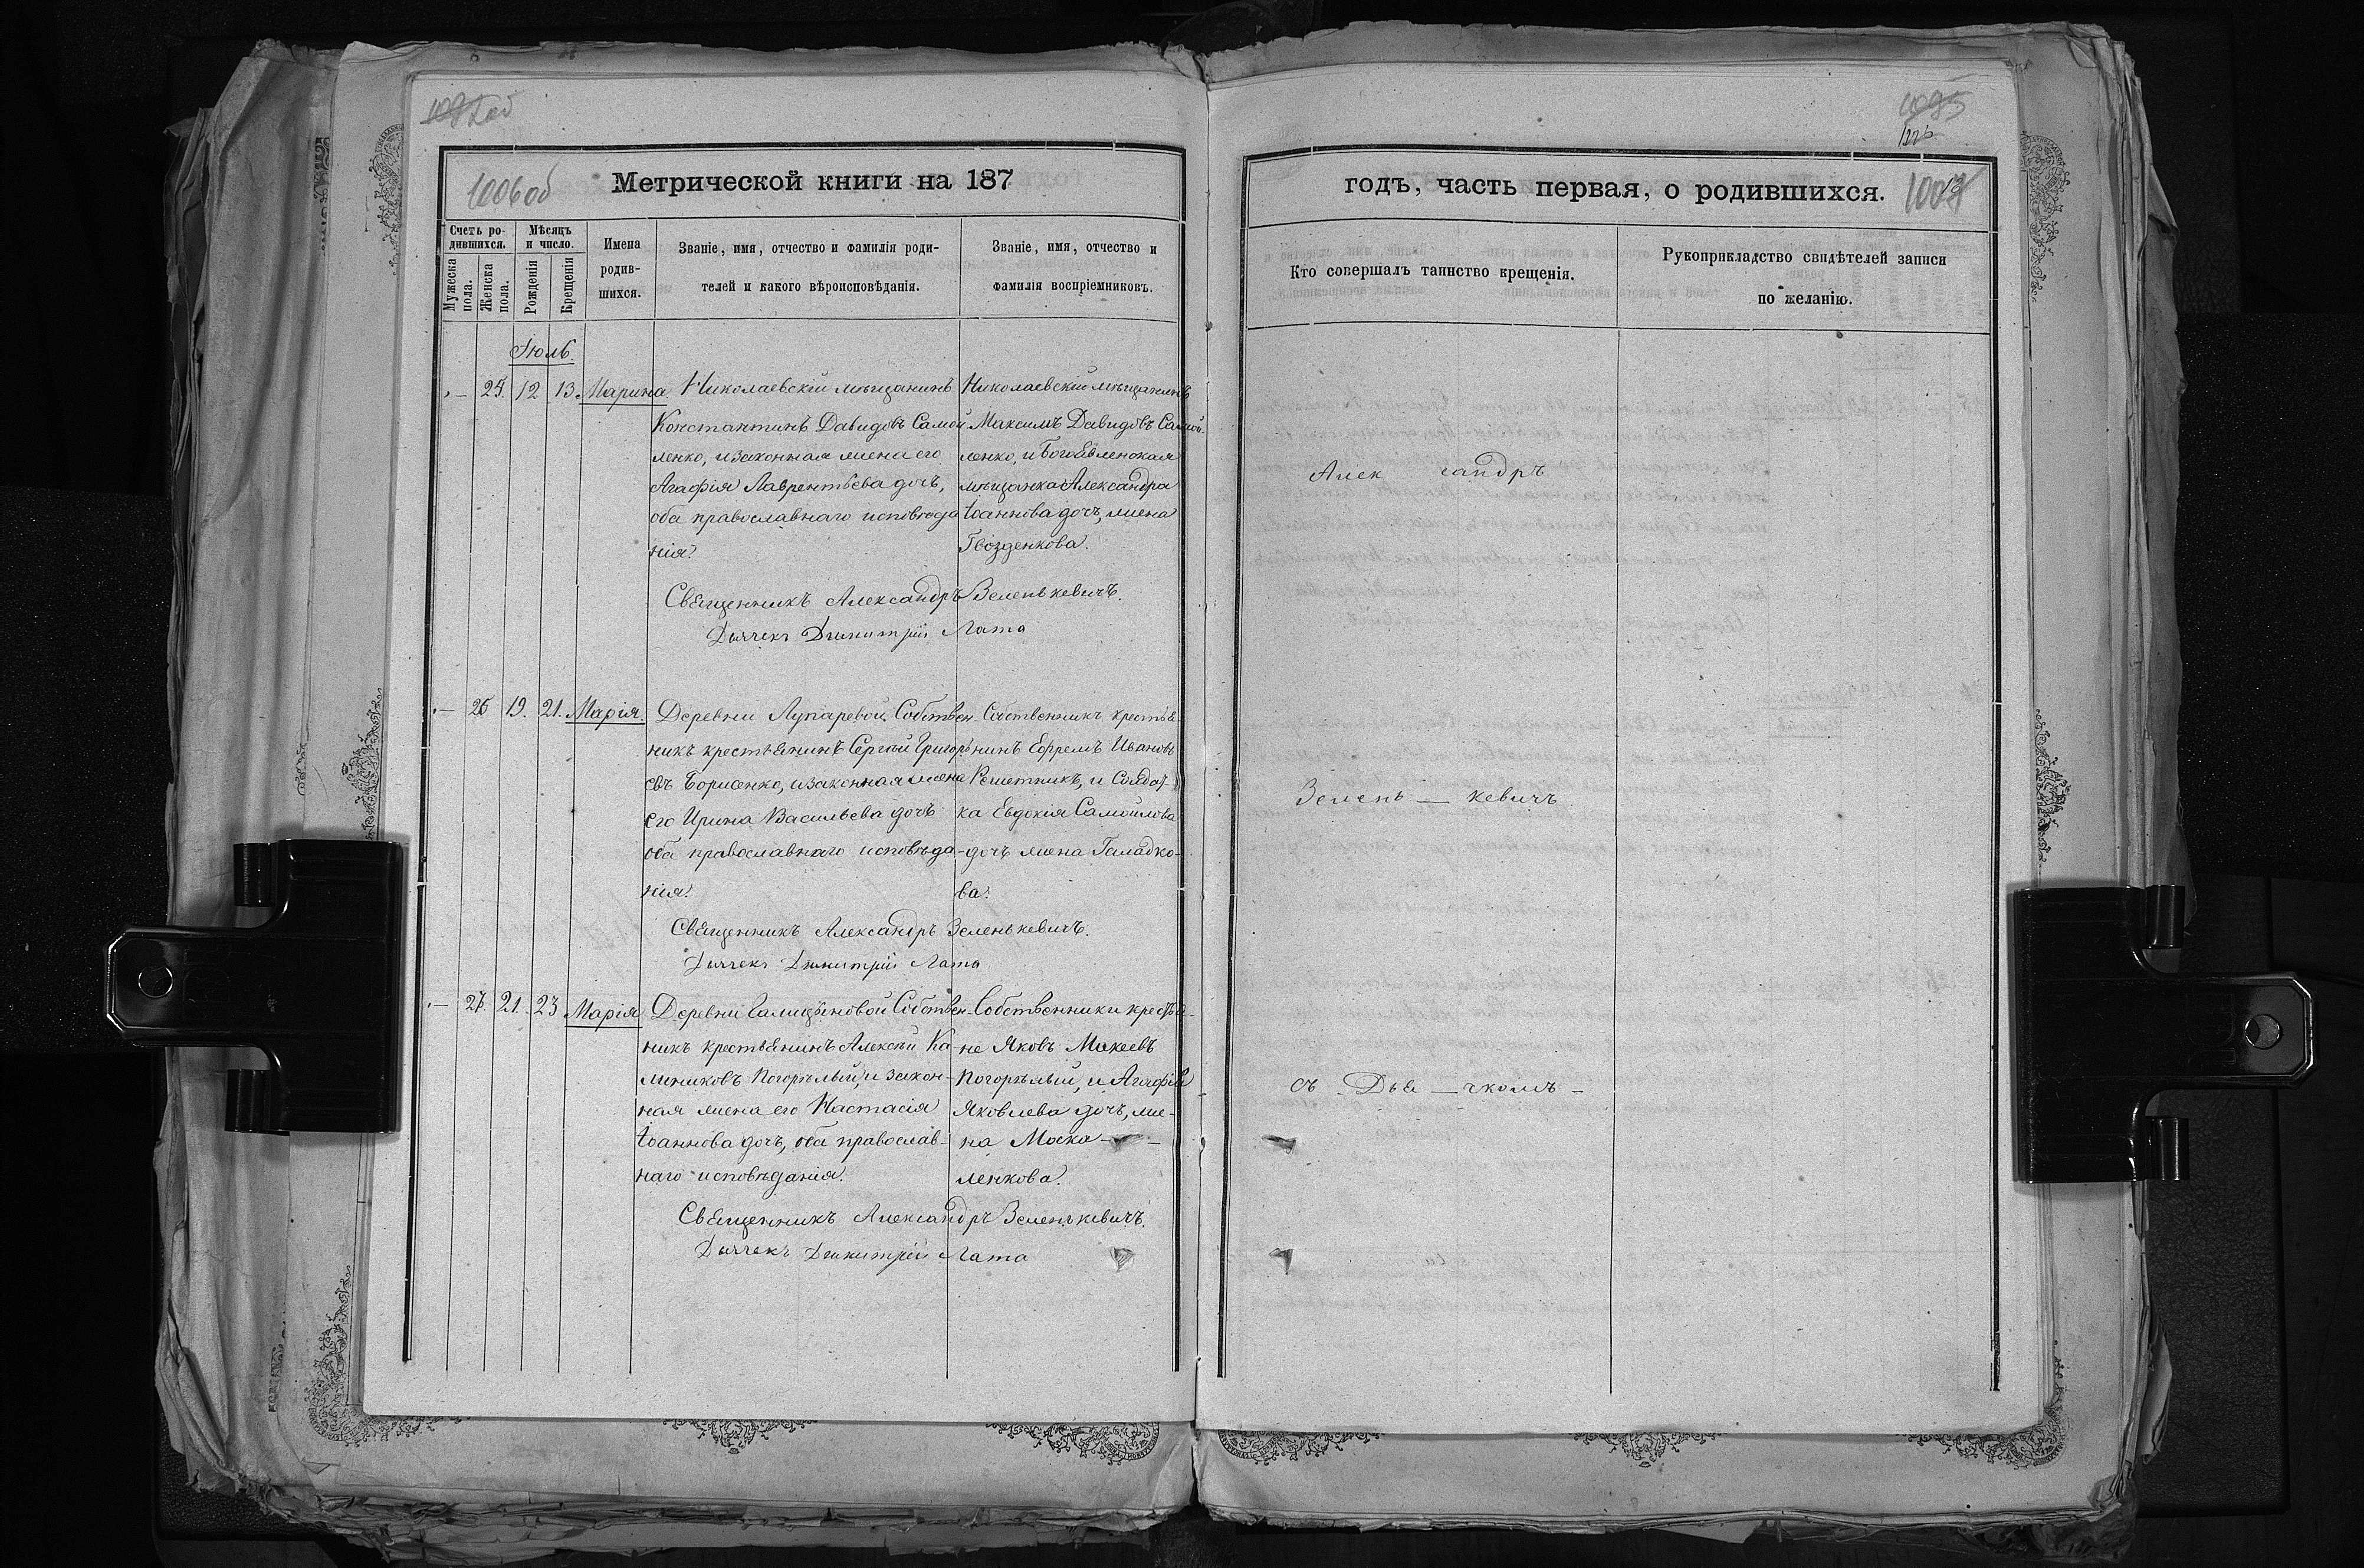 1006об
Метрической книги на 187
Счетъ ро-
дившихся.
Мужеска
пола.
Женска
пола.
Мѣсяцъ
и число.
Рожденія
Крещенія
Имена
родив-
шихся.
Званіе, имя, отчество и фамилія роди-
телей и какого вѣроисповѣданія.
Званіе, имя, отчество и
фамилія воспріемниковъ.
Іюль.
25. 12 13. Марина.
Николаевскій мѣщанинъ
Константинъ Давидовъ Самой
ленко, и законная жена его
Агафія Лаврентьева дочь,
оба православнаго исповѣда
нія.
Николаевскій мѣщанинъ
Максимъ Давидовъ Самой-
ленко, и Богоявленская
мѣщанка Александра
Іоаннова дочь, жена
Гвозденкова.
Священникъ Александръ Зеленькевичъ.
Дьячекъ Димитрій Лата
26 19. 21. Марія.
Деревни Лупаревой Собствен-
никъ крестьянинъ Сергѣй Григорь
евъ Борисенко, и законная жена
его Ирина Васильева дочь
оба православнаго исповѣда-
нія.
Собственникъ крестья-
нинъ Ефремъ Ивановъ
Решетникъ, и Солдат-
ка Евдокія Самойлова
дочь жена Гладко-
ва.
Священникъ Александръ Зеленькевичъ.
Дьячекъ Димитрій Лата
27. 21. 23 Марія
Деревни Галицыновой Собствен-
никъ крестьянинъ Алексѣй Ка-
лениковъ Погорѣлый, и закон-
ная жена его Настасія
Іоаннова дочь, оба православ-
наго исповѣданія.
Собственники крестья-
не Яковъ Мокеевъ
Погорѣлый, и Агафія
Яковлева дочь, же-
на Моска-
ленкова.
Священникъ Александръ Зеленькевичъ.
Дьячекъ Димитрій Лата
1095
годъ, часть первая, о родившихся.
Кто совершалъ таинство крещенія.
Рукоприкладство свидѣтелей записи
по желанію.
Алек сандръ
Зелень — кевичъ
съ — Дья — чкомъ —